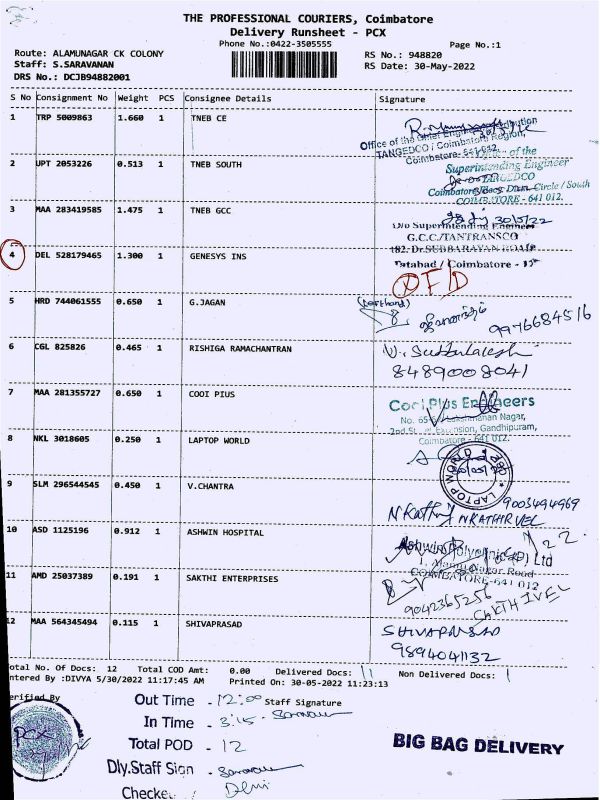 THE PROFESSIONAL COURIERS, Coimbatore
Delivery Runsheet - PCX
Phone No.:0422-3505555
Page No.:1
Route: ALAMUNAGAR CK COLONY
Staff: S.SARAVANAN
DRS No.: DCJB94882001
RS No.: 948820
RS Date: 30-May-2022
S No Consignment No Weight PCS Consignee Details Signature
1 TRP 5009863 1.660 1 TNEB CE
Office of the Chief Engineer/Distribution
TANGEDCO / Coimbatore Region,
Coimbatore-641 012.
2 UPT 2053226 0.513 1 TNEB SOUTH
of the
Superintending Engineer
TANGEDCO
Circle / South
COIMBATORE - 641 012.
3 MAA 283419585 1.475 1 TNEB GCC
30/5/22
O/o Superintending Engineer
G.C.C./TANTRANSCO
182, Dr.SUBBARAYAN ROAD
Tatabad / Coimbatore - 12
4 DEL 528179465 1.300 1 GENESYS INS
OFD
5 HRD 744061555 0.650 1 G.JAGAN
9976684516
6 CGL 825826 0.465 1 RISHIGA RAMACHANTRAN
8489008041
7 MAA 281355727 0.650 1 COOI PIUS
Cool Plus Engineers
No. 65 Lakshmanan Nagar,
2nd St Extension, Gandhipuram,
Coimbatore - 641 012.
8 NKL 3018605 0.250 1 LAPTOP WORLD
LAPTOP WORLD
9 SLM 296544545 0.450 1 V.CHANTRA
9003494969
N KATHIRVEL
10 ASD 1125196 0.912 1 ASHWIN HOSPITAL
Ashwin Polyclinic (P) Ltd
1, Alamu Nagar Road
COIMBATORE-641 012
11 AMD 25037389 0.191 1 SAKTHI ENTERPRISES
9042365256
SAKTHIVEL
12 MAA 564345494 0.115 1 SHIVAPRASAD
SHIVAPRASAD
9894041132
Total No. Of Docs: 12 Total COD Amt: 0.00 Delivered Docs: 11 Non Delivered Docs: 1
Entered By :DIVYA 5/30/2022 11:17:45 AM Printed On: 30-05-2022 11:23:13
Verified By
Staff Signature
PCX
Out Time - 12:00
In Time - 3:15
Total POD - 12
Dly.Staff Sign -
Checke
BIG BAG DELIVERY